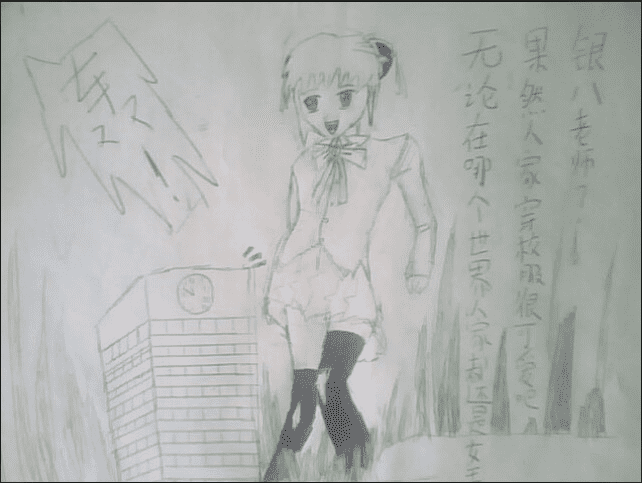 银八老师了！
果然人家穿校服很可爱吧
无论在哪个世界人家都还是女王